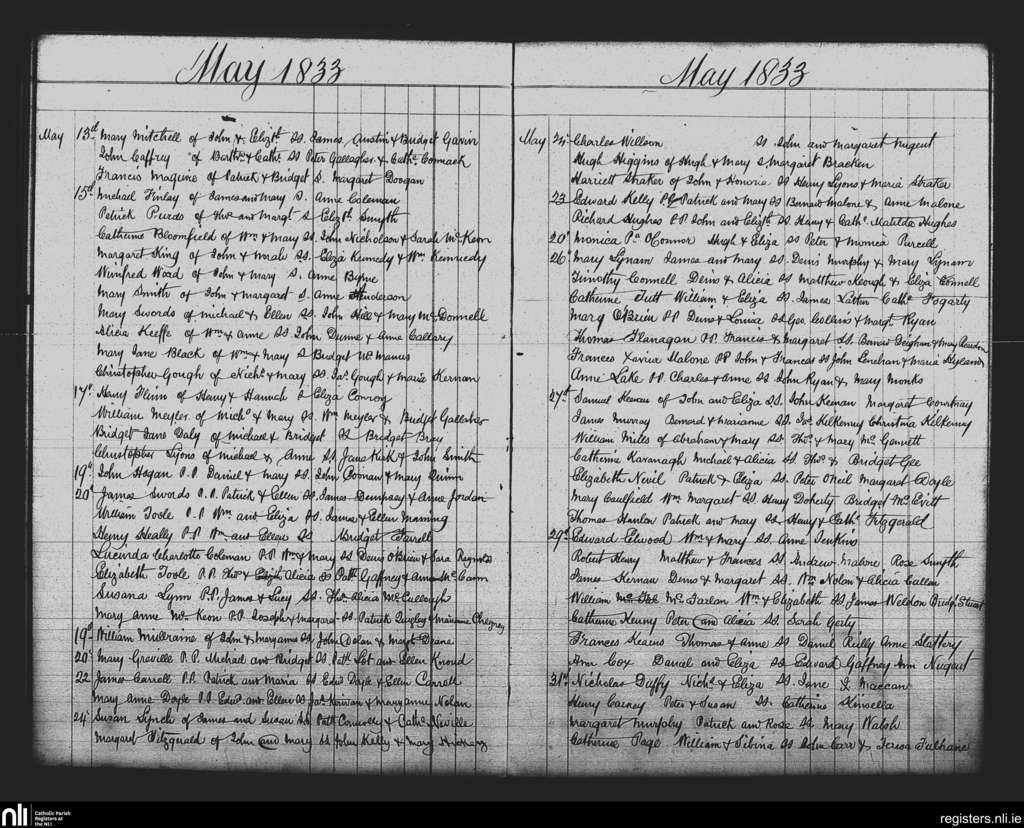 May 1833
May 13th Mary Mitchell of John & Elizth Ss. James Austin & Bridget Gavin
John Caffrey of Barthw & Cathe Ss Peter Gallagher & Cathe Cormack
Francis Maguire of Patrick & Bridget S. Margaret Doogan
15th Michael Finlay of James and Mary S. Anne Coleman
Patrick of Thos and Margt S Elizth Smyth
Catherine Bloomfield of Wm & Mary Ss. John Nicholson & Sarah McKeon
Margaret King of John & Ss. Eliza Kennedy & Wm Kennedy
Winifred Wood of John & Mary S. Anne Byrne
Mary Smith of John & Margaret S. Anne Henderson
Mary Swords of Michael & Ellen Ss. John & Mary McDonnell
Alicia Keeffe of Wm & Anne Ss John Dunne & Anne Callary
Mary Jane Black of Wm & Mary S Bridget McManus
Christopher Gough of Nichs & Mary Ss Jas. Gough & Maria Kernan
17th Harry Flinn of Harry & Hannah S Eliza Conroy
William Meyler of Michs & Mary Ss. Wm Meyler & Bridget Gallagher
Bridget Jane Daly of Michael & Bridget Ss Bridget Bray
Christopher Lyons of Michael & Anne Ss Jane Kirk & John Smith
19th John Hogan P.P. Daniel & Mary Ss. John Noonan & Mary Quinn
20th James Swords P.P. Patrick & Ellen Ss. James Dempsey & Anne Jordan
William Toole P.P Wm and Eliza Ss. James & Ellen Manning
Henry Healy P.P Wm and Ellen Ss Bridget Farrell
Lucinda Charlotte Coleman P.P Wm & Mary Ss Denis OBrien & Sara Reynolds
Elizabeth Toole P.P. Thos & Alicia Ss Patk Gaffney & Anne McCann
Susana Lynn P.P. James & Lucy Ss Thos Alicia McCullogh
Mary Anne McKeon P.P Joseph & Margaret Ss Patrick Quigley & Marianne
19th William of John & Maryanne Ss. John Dolan & Margt
20th Mary Graville P.P. Michael and Bridget Ss Patk and Ellen
22 James Carroll P.P. Patrick and Maria Ss Edwd Doyle & Ellen Carroll
Mary Anne Doyle P.P Edwd and Ellen Ss Jas Kernan & Mary Anne Nolan
24th Susan Lynch of James and Susan Ss Patk Connolly & Cathe Neville
Margaret Fitzgerald of John and Mary Ss John Kelly & Mary
May 1833
May 24 Charles Willson Ss John and Margaret Nugent
Hugh Higgins of Hugh & Mary S Margaret Bracken
Harriett Straker of John & Honoria Ss Henry Lyons & Maria Straker
23 Edward Kelly P.P Patrick and Mary Ss Bernard Malone & Anne Malone
Richard Hughes P.P John and Elizth Ss Henry & Cathe Matilda Hughes
20th Monica P. OConnor Hugh & Eliza Ss Peter & Monica Purcell
26th Mary Lynam James and Mary Ss. Denis Murphy & Mary Lynam
Timothy Connell Denis & Alicia Ss Matthew Keough & Eliza Connell
Catherine Tutt William & Eliza Ss. James Cathe Fogarty
Mary OBrien P.P Denis & Louisa Ss Geo. Collins & Margt. Ryan
Thomas Flanagan P.P. Francis & Margaret Ss. Bernard Deighan & Mary Reardon
Frances Xavier Malone P.P John & Frances Ss John Lenehan & Maria Hyland
Anne Lake P.P. Charles & Anne Ss John Ryan & Mary Monks
27th Samuel Keenan of John and Eliza Ss. John Keenan Margaret Courtnay
James Murray Bernard & Marianne Ss Jas Kilkenny Christina Kilkenny
William Mills of Abraham & Mary Ss Thos & Mary McGannett
Catherine Kavanagh Michael & Alicia Ss. Thos & Bridget Gee
Elizabeth Nevil Patrick & Eliza Ss. Peter ONeil Margaret Doyle
Mary Caulfield Wm Margaret Ss. Henry Doherty Bridget McEvitt
Thomas Hanlon Patrick and Mary Ss. Henry & Cathe Fitzgerald
29th Edward Elwood Wm & Mary Ss. Anne Jenkins
Robert Henry Matthew & Frances Ss. Andrew Malone Rose Smyth
James Kernan Denis & Margaret Ss. Wm Nolan & Alicia Cullen
William McFarlan Wm & Elizabeth Ss James Weldon Bridgt Stuart
Catherine Kenny Peter and Alicia Ss. Sarah
Frances Kearns Thomas & Anne Ss Daniel Reilly Anne Slattery
Ann Cox Daniel and Eliza Ss Edward Gaffney Ann Nugent
31st Nicholas Duffy Nichs & Eliza Ss Jane
Henry Carney Peter & Susan Ss. Catherine Kinsella
Margaret Murphy Patrick and Rose Ss Mary Walsh
Catherine Page William & Sibina Ss John Carr & Teresa
nli Catholic Parish
Registers at
the NLI
registers.nli.ie